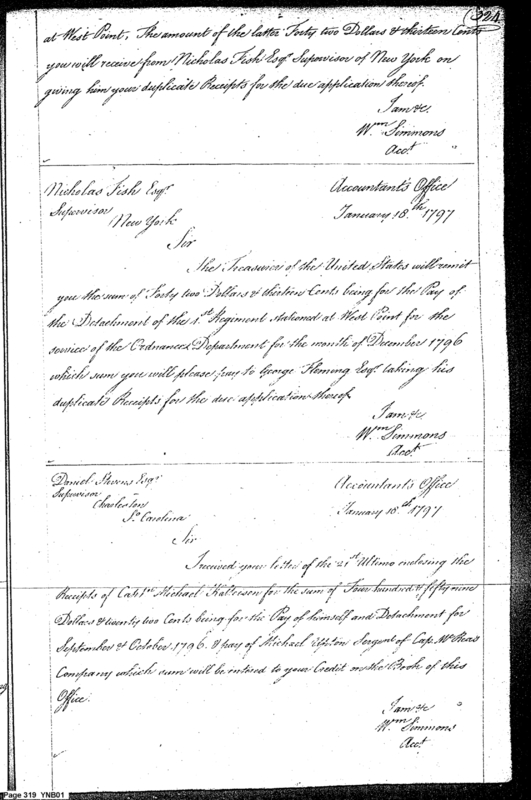 324
at West Point, The amount of the latter Forty two Dollars & thirteen Cents
you will receive from Nicholas Fish Esqr. Supervisor of New York on
giving him your duplicate Receipts for the due application thereof.
I am &c.
Wm Simmons
Acct.
Nicholas Fish Esqr. Accountant's Office
Supervisor January 18.th 1797
New York
Sir
The Treasurer of the United States will remit
you the sum of Forty two Dollars & thirteen Cents being for the Pay of
the Detachment of the 1.st Regiment stationed at West Point for the
service of the Ordnance Department for the month of December 1796
which sum you will please pay to George Fleming Esqr. taking his
duplicate Receipts for the due application thereof
I am &c
Wm Simmons
Acct.
Daniel Stevens Esqr. Accountants Office
Supervisor January 18.th 1797
Charleston
So. Carolina
Sir
I received your letter of the 21st Ultimo enclosing the
Receipts of Capt. Michael Kalteison for the sum of Four hundred & fifty nine
Dollars & twenty two Cents being for the Pay of himself and Detachment for
September & October 1796. & pay of Michael Sergent of Cap. McReas
Company which sum will be entered to your Credit on the Book of this
Office.
I am &c
Wm Simmons
Acct.
Page 319 YNB01